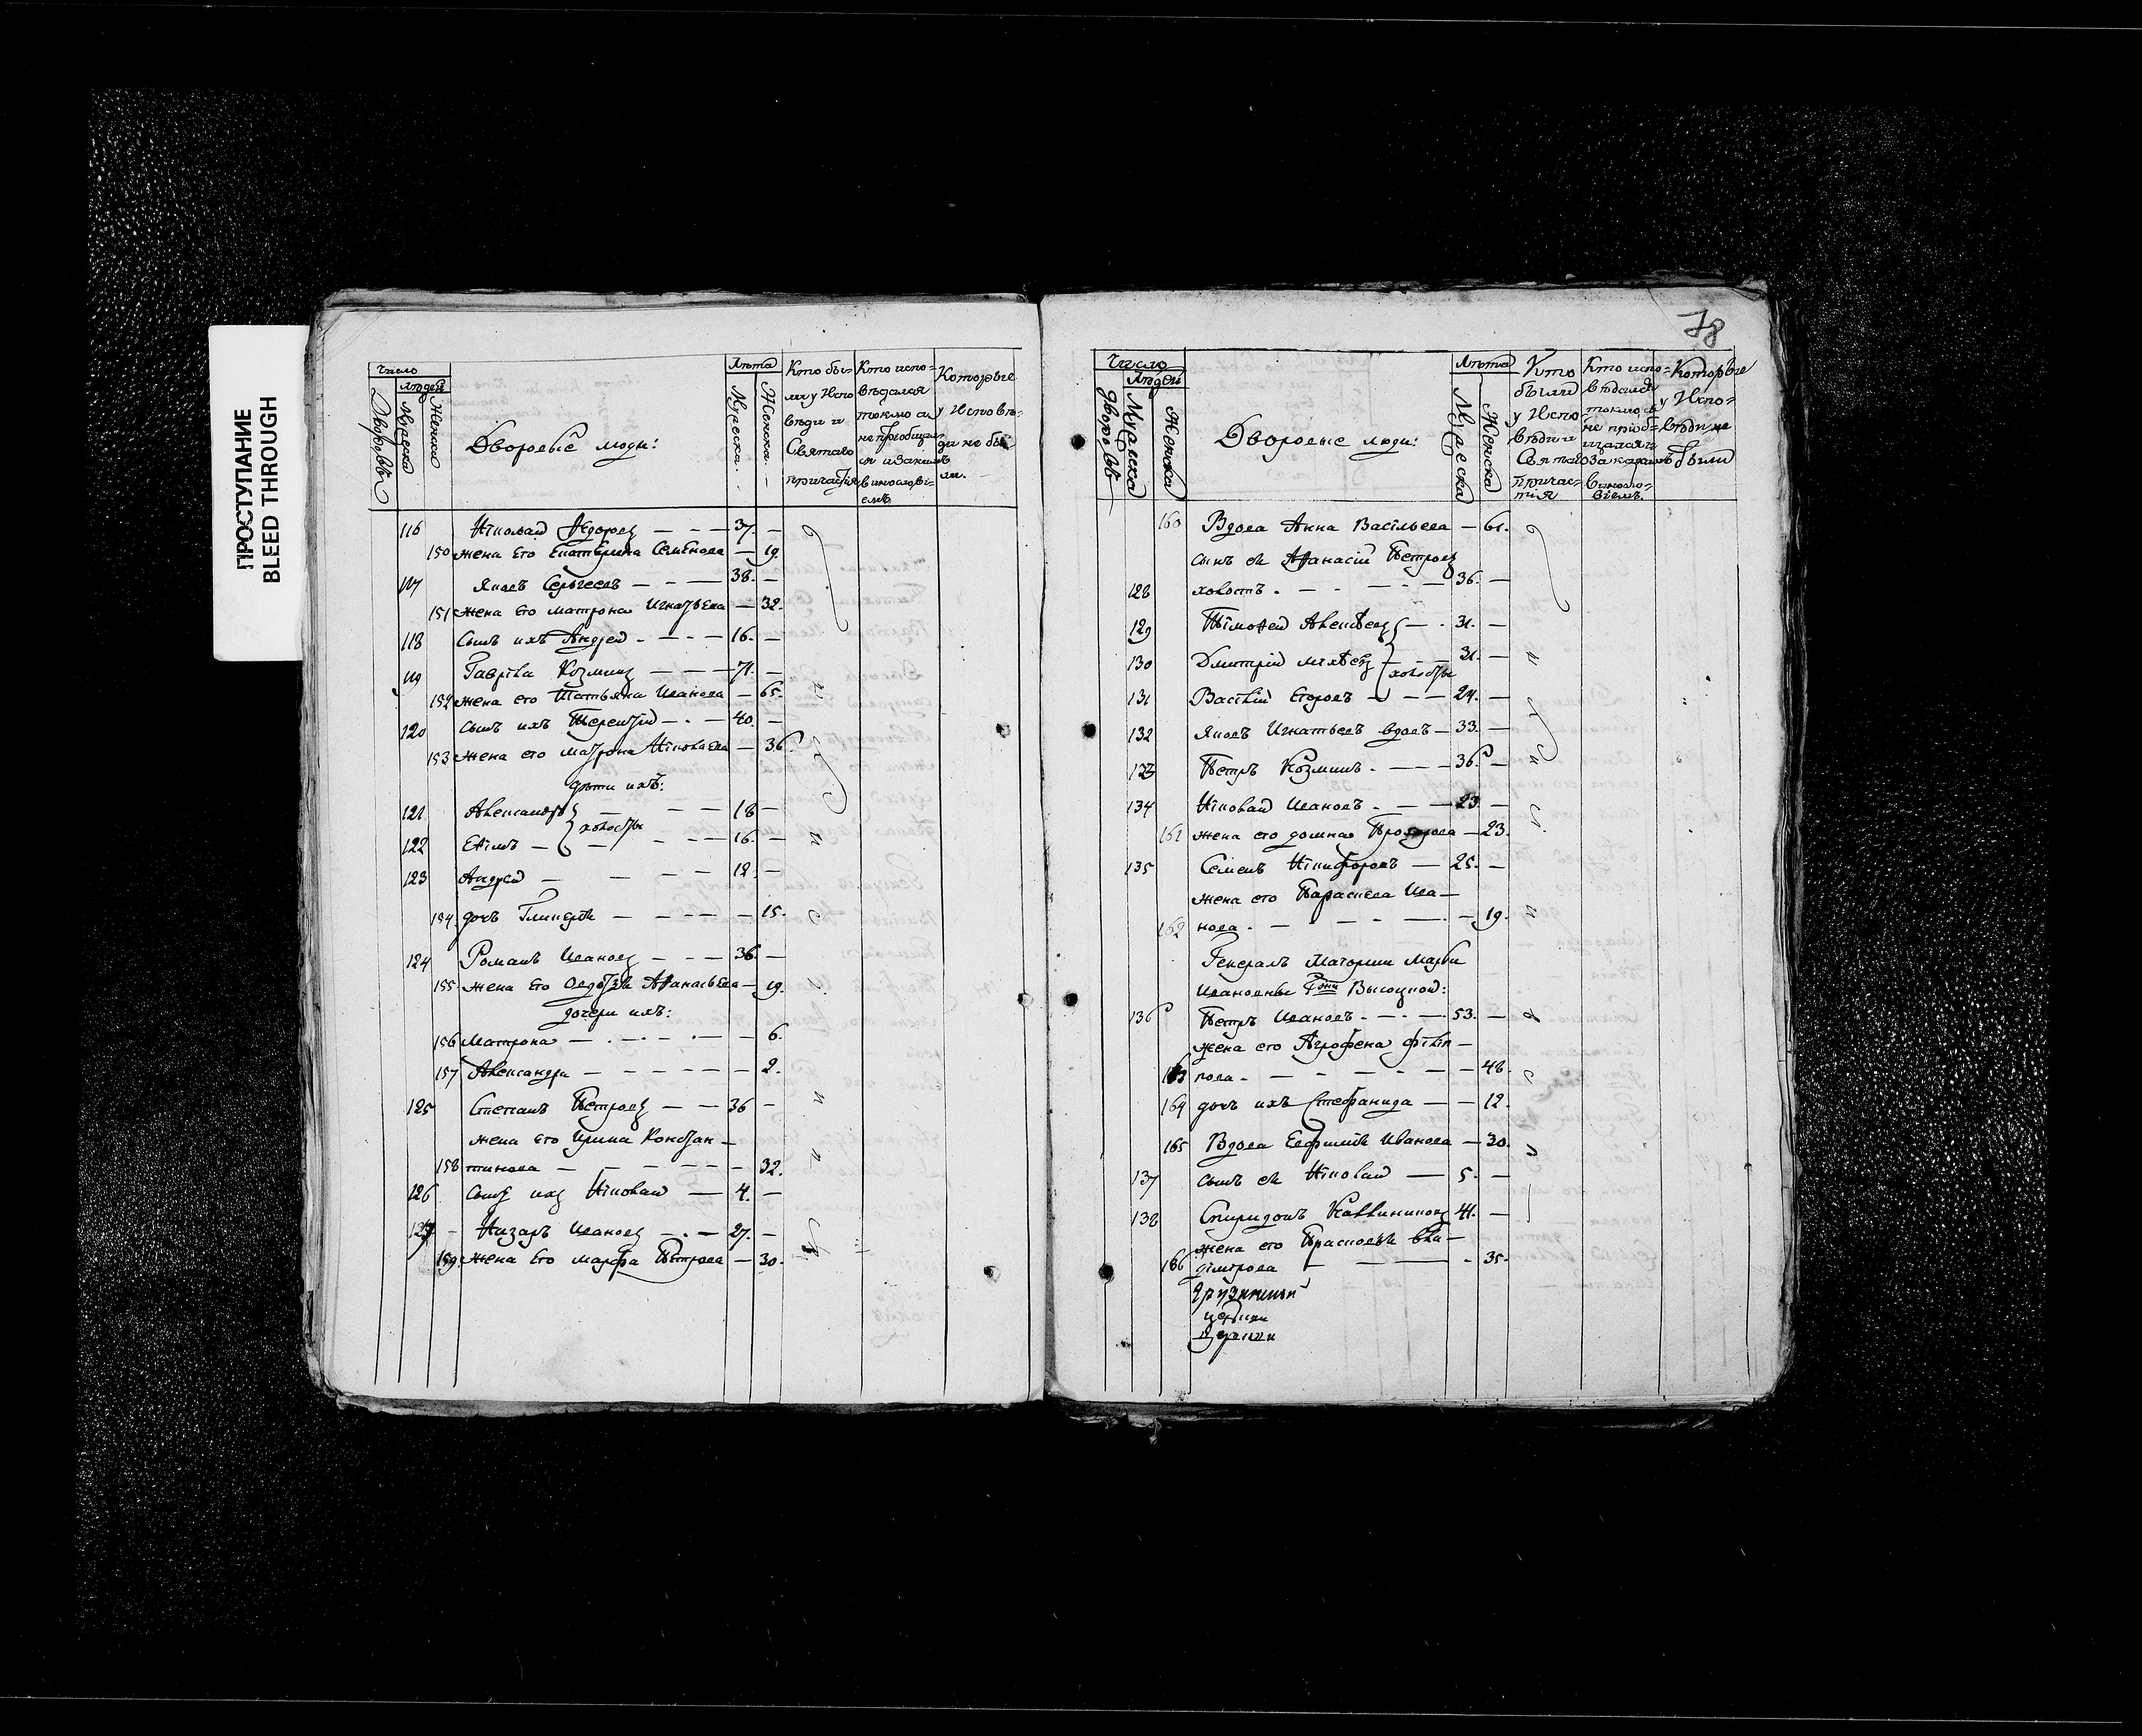 ПРОСТУПАНИЕ
BLEED THROUGH
Число
Людей
Дворовъ
Мужеска
Женска
Дворовые люди:
Лѣта
Мужеска.
Женска.
Кто бы-
ли у Испо
вѣди и
Святаго
причастія
Кто испо-
вѣдался
токмо а
не приобщил
ся и за каким
винословi-
емъ
Которые
у Исповѣ-
ди не бы
ли.
116 Нiколай Ѳедоровъ — 37. —
150 жена Его Екатерина Семенова — 19.
117 Яковъ Сергеевъ — 38. —
151 жена Его Матрона Игнатьева — 32.
118 Сынъ ихъ Андрей — 16. —
119 Гаврiла Козминъ — 71. —
152 жена его Татьяна Иванова — 65.
120 сынъ ихъ Терентiй — 40. —
153 жена его Матрона Нiколаева — 36.
дѣти ихъ:
121 Александръ — 18 —
холосты
122 Еѳимъ — 16. —
123 Андрей — 12. —
154. дочь Гликерiя — 15.
124 Романъ Ивановъ — 36. —
155. жена Его Авдотья Аѳанасьева — 19.
дочери ихъ:
156 Матрона — 6.
157 Александра — 2.
125 Степанъ Петровъ — 36 —
жена его Ирина Констан-
158 тинова — 32.
126 Сынъ ихъ Нiколай — 4. —
127 Назаръ Ивановъ — 27. —
159. Жена Его Марфа Петрова — 30.
78
Число
Людей
Дворовъ
Мужеска
Женска
Дворовые люди:
Лѣта
Мужеска
Женска
Кто
были
у Испо
вѣди и
Святаго
причас-
тiя
Кто испо-
вѣдался
токмо а
не приоб-
щался и
за какимъ
виносло-
вiемъ.
Которые
у Испо-
вѣди не
были
160 Вдова Анна Васiльева — 61.
сынъ ея Аѳанасiй Петровъ
128 холостъ. — 36. —
129 Тiмоѳей Алексѣевъ — 31. —
130 Дмитрiй — 31. —
холосты
131 Васiлiй Егоровъ — 24. —
132 Яковъ Игнатьевъ вдовъ — 33. —
133 Петръ Козминъ. — 36. —
134 Нiколай Ивановъ. — 23. —
161 жена его Домна Прохорова — 23.
135 Семенъ Нiкифоровъ — 25. —
жена его Параскева Ива-
162 нова. — 19.
Генералъ Маiорши Марьи
Ивановны Гжи Высоцкой:
136 Петръ Ивановъ. — 53. —
жена его Агрофена Фiлiп-
163 пова. — 48.
164 дочь ихъ Стефанида — 12.
165 Вдова Евфимiя Иванова — 30.
137 сынъ ея Нiколай — 5. —
138 Спиридонъ Каллиниковъ 41. —
жена его Прасковья Вла-
166 дiмiрова — 35.